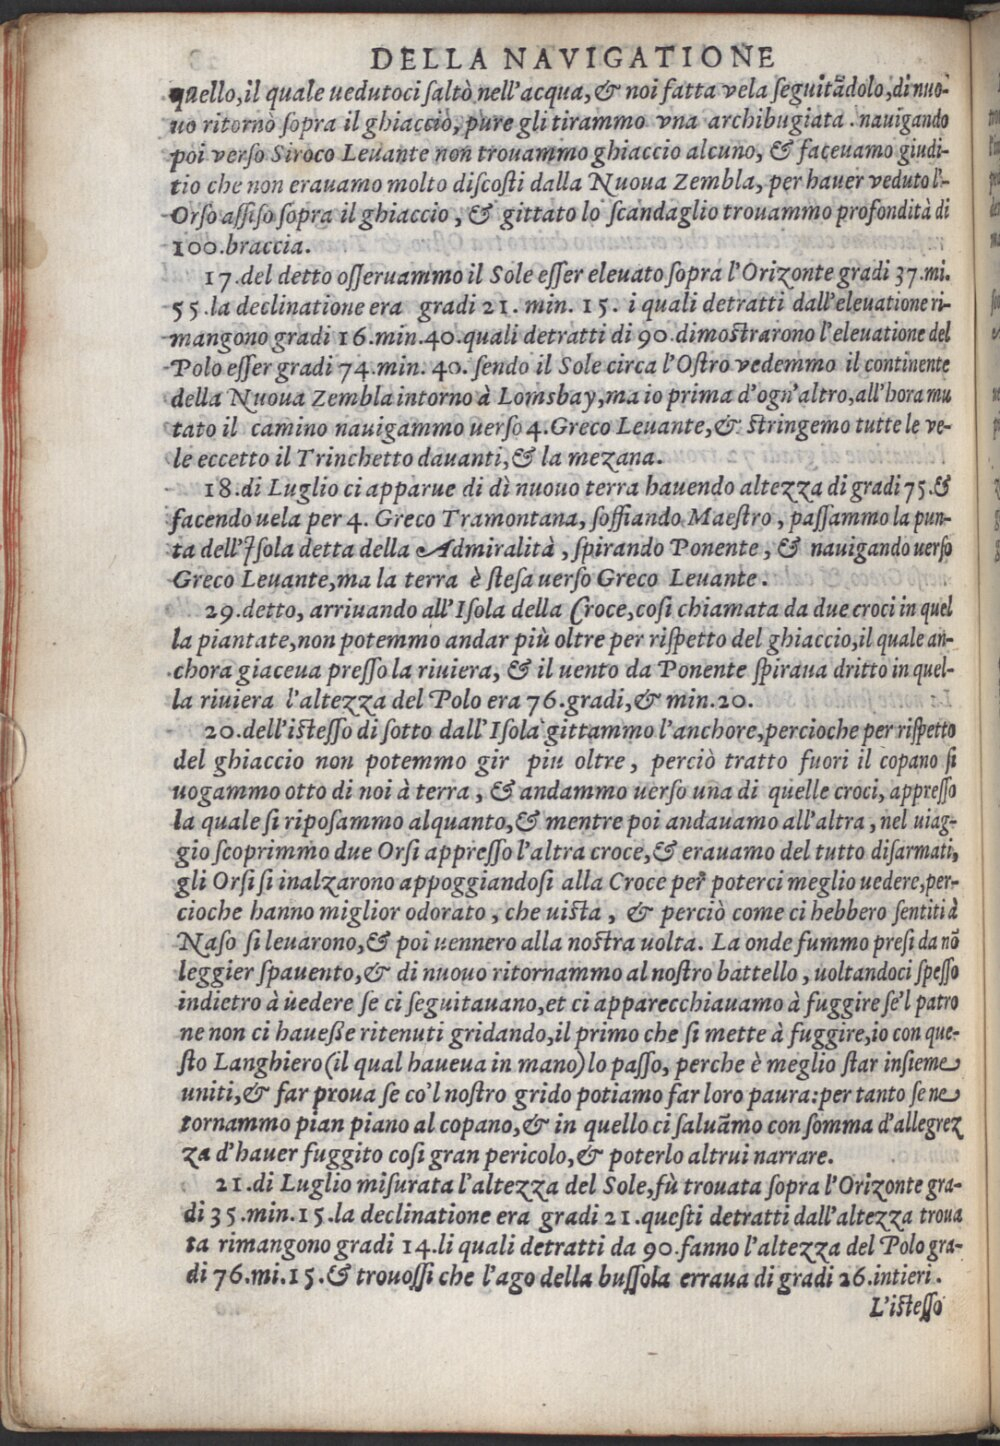 DELLA NAVIGATIONE
quello, il quale uedutoci saltò nell'acqua, & noi fatta vela seguitãdolo, di nuo-
uo ritornò sopra il ghiaccio, pure gli tirammo vna archibugiata. nauigando
poi verso Siroco Leuante non trouammo ghiaccio alcuno, & faceuamo giudi-
tio che non erauamo molto discosti dalla Nuoua Zembla, per hauer veduto l'-
Orso assiso sopra il ghiaccio, & gittato lo scandaglio trouammo profondità di
100.braccia.
17.del detto osseruammo il Sole esser eleuato sopra l'Orizonte gradi 37.mi.
55.la declinatione era gradi 21. min. 15. i quali detratti dall'eleuatione ri-
mangono gradi 16.min.40.quali detratti di 90.dimostrarono l'eleuatione del
Polo esser gradi 74.min. 40. sendo il Sole circa l'Ostro vedemmo il continente
della Nuoua Zembla intorno à Lomsbay, ma io prima d'ogn'altro, all'hora mu
tato il camino nauigammo uerso 4.Greco Leuante, & stringemo tutte le ve-
le eccetto il Trinchetto dauanti, & la mezana.
18.di Luglio ci apparue di dì nuouo terra hauendo altezza di gradi 75.&
facendo uela per 4. Greco Tramontana, soffiando Maestro, passammo la pun-
ta dell'Isola detta della Admiralità, spirando Ponente, & nauigando uerso
Greco Leuante, ma la terra è stesa uerso Greco Leuante.
29.detto, arriuando all'Isola della Croce, cosi chiamata da due croci in quel
la piantate, non potemmo andar più oltre per rispetto del ghiaccio, il quale an-
chora giaceua presso la riuiera, & il uento da Ponente spiraua dritto in quel-
la riuiera l'altezza del Polo era 76.gradi, & min.20.
20.dell'istesso di sotto dall'Isola gittammo l'anchore, percioche per rispetto
del ghiaccio non potemmo gir piu oltre, perciò tratto fuori il copano si
uogammo otto di noi à terra, & andammo uerso una di quelle croci, appresso
la quale si riposammo alquanto, & mentre poi andauamo all'altra, nel uiag-
gio scoprimmo due Orsi appresso l'altra croce, & erauamo del tutto disarmati,
gli Orsi si inalzarono appoggiandosi alla Croce per poterci meglio uedere, per-
cioche hanno miglior odorato, che uista, & perciò come ci hebbero sentiti à
Naso si leuarono, & poi uennero alla nostra uolta. La onde fummo presi da nõ
leggier spauento, & di nuouo ritornammo al nostro battello, uoltandoci spesso
indietro à uedere se ci seguitauano, et ci apparecchiauamo à fuggire se'l patro
ne non ci haueße ritenuti gridando, il primo che si mette à fuggire, io con que-
sto Langhiero (il qual haueua in mano) lo passo, perche è meglio star insieme
uniti, & far proua se co'l nostro grido potiamo far loro paura: per tanto se ne
tornammo pian piano al copano, & in quello ci saluãmo con somma d'allegrez
za d'hauer fuggito cosi gran pericolo, & poterlo altrui narrare.
21.di Luglio misurata l'altezza del Sole, fù trouata sopra l'Orizonte gra-
di 35.min.15.la declinatione era gradi 21.questi detratti dall'altezza troua
ta rimangono gradi 14.li quali detratti da 90.fanno l'altezza del Polo gra-
di 76.mi.15.& trouossi che l'ago della bussola erraua di gradi 26.intieri.
L'istesso